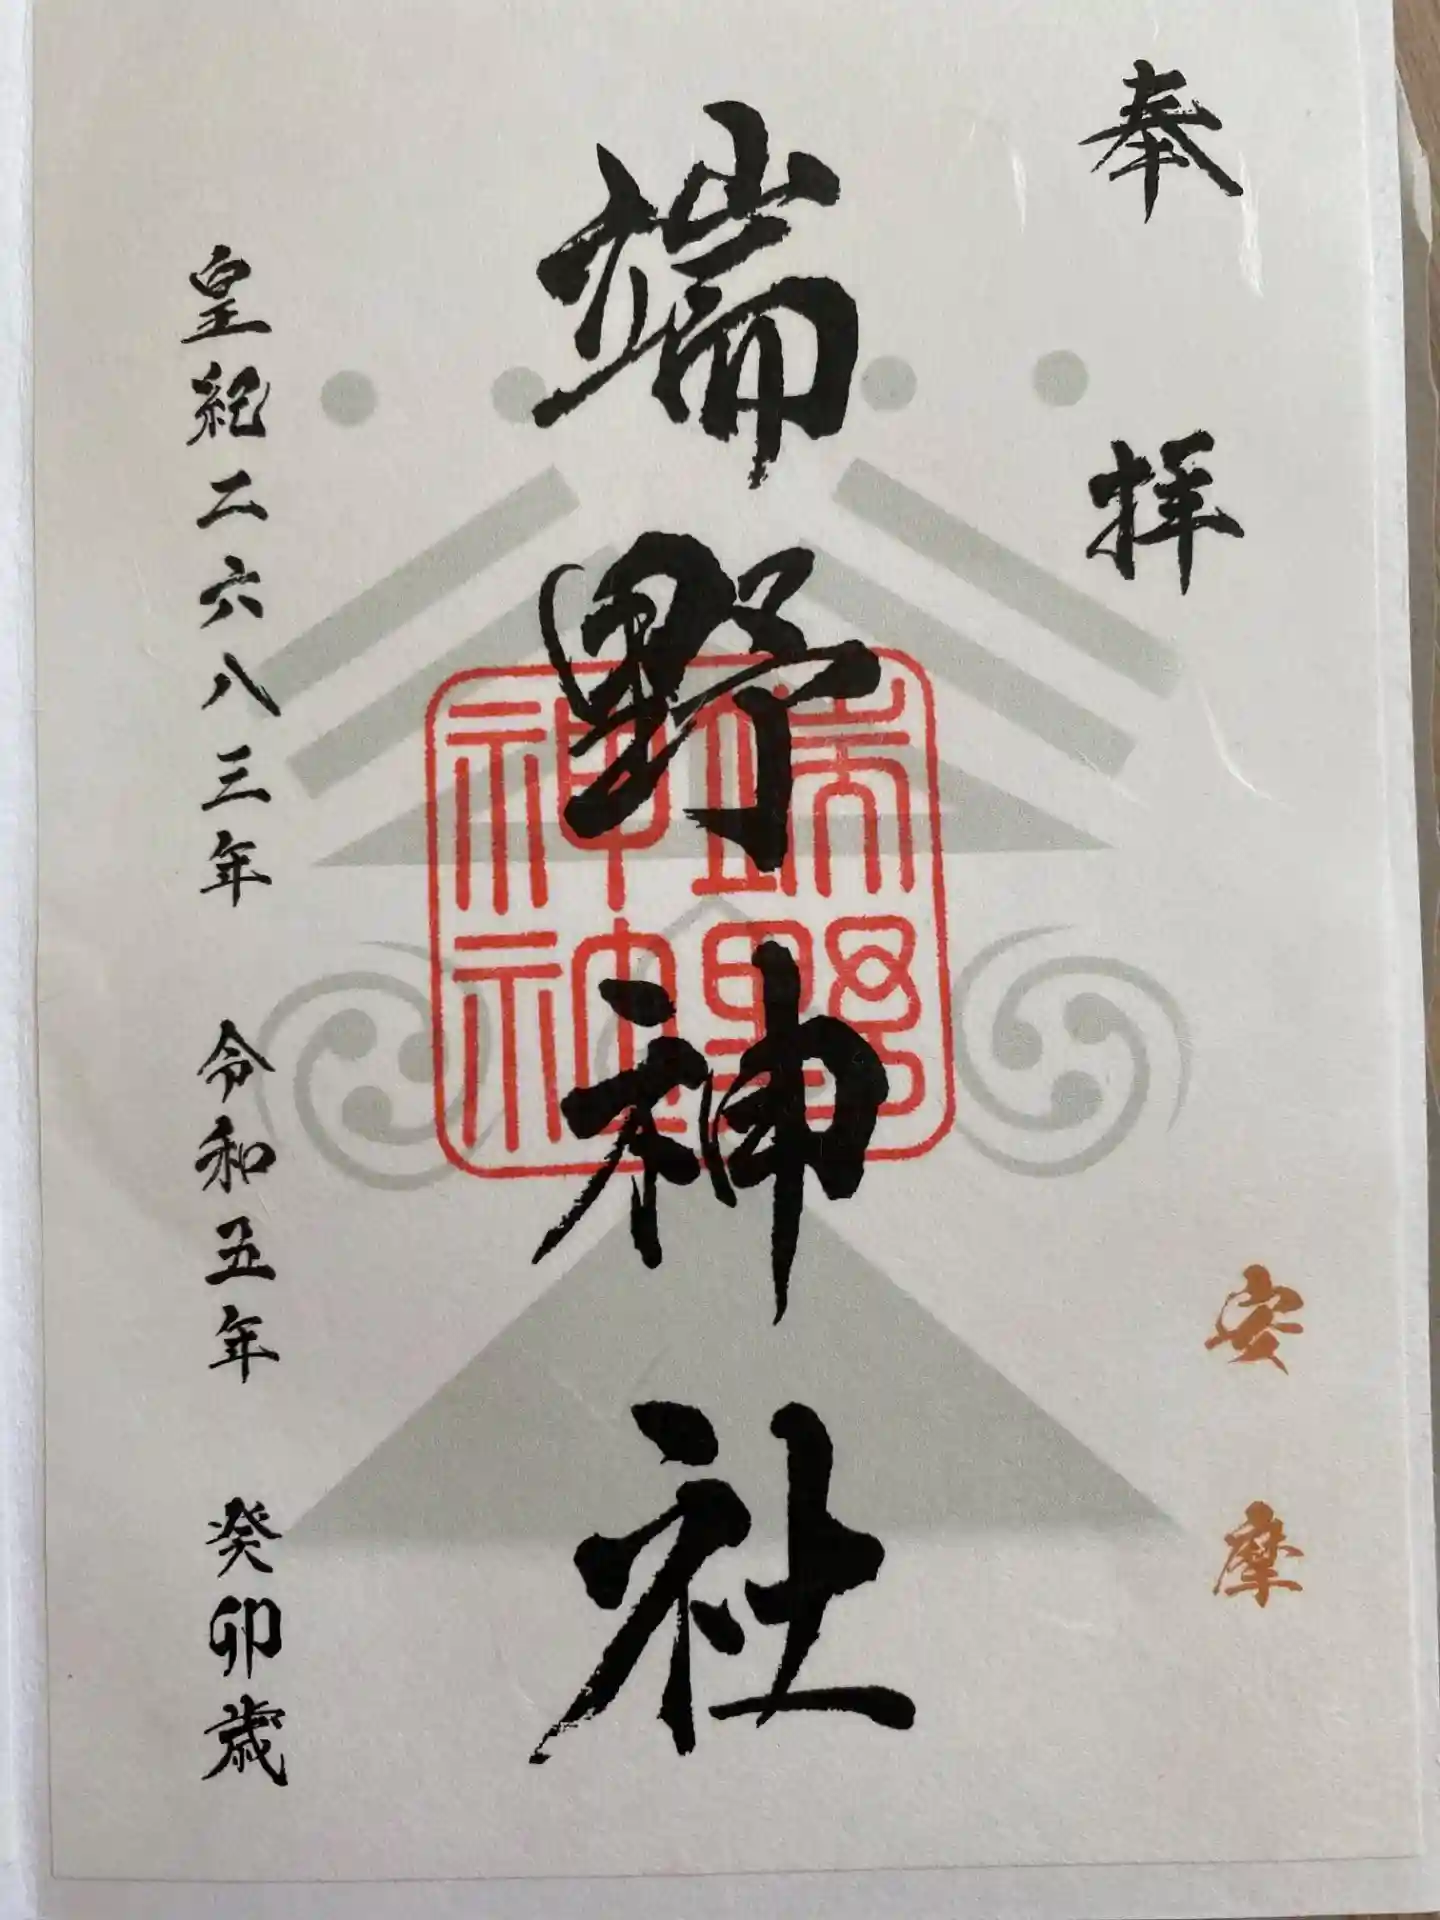 奉拝
安摩
端野神社
端野神社
皇紀二六八三年 令和五年 癸卯歳